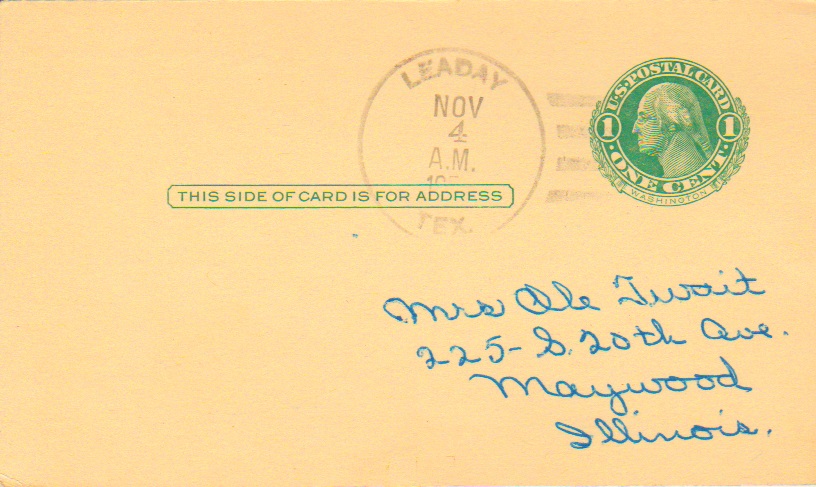 LEADAY
NOV
4
A.M.
TEX.
U.S. POSTAL CARD
1 1
ONE CENT
WASHINGTON
THIS SIDE OF CARD IS FOR ADDRESS
Mrs Ole Twait
225- S. 20th Ave.
Maywood
Illinois.